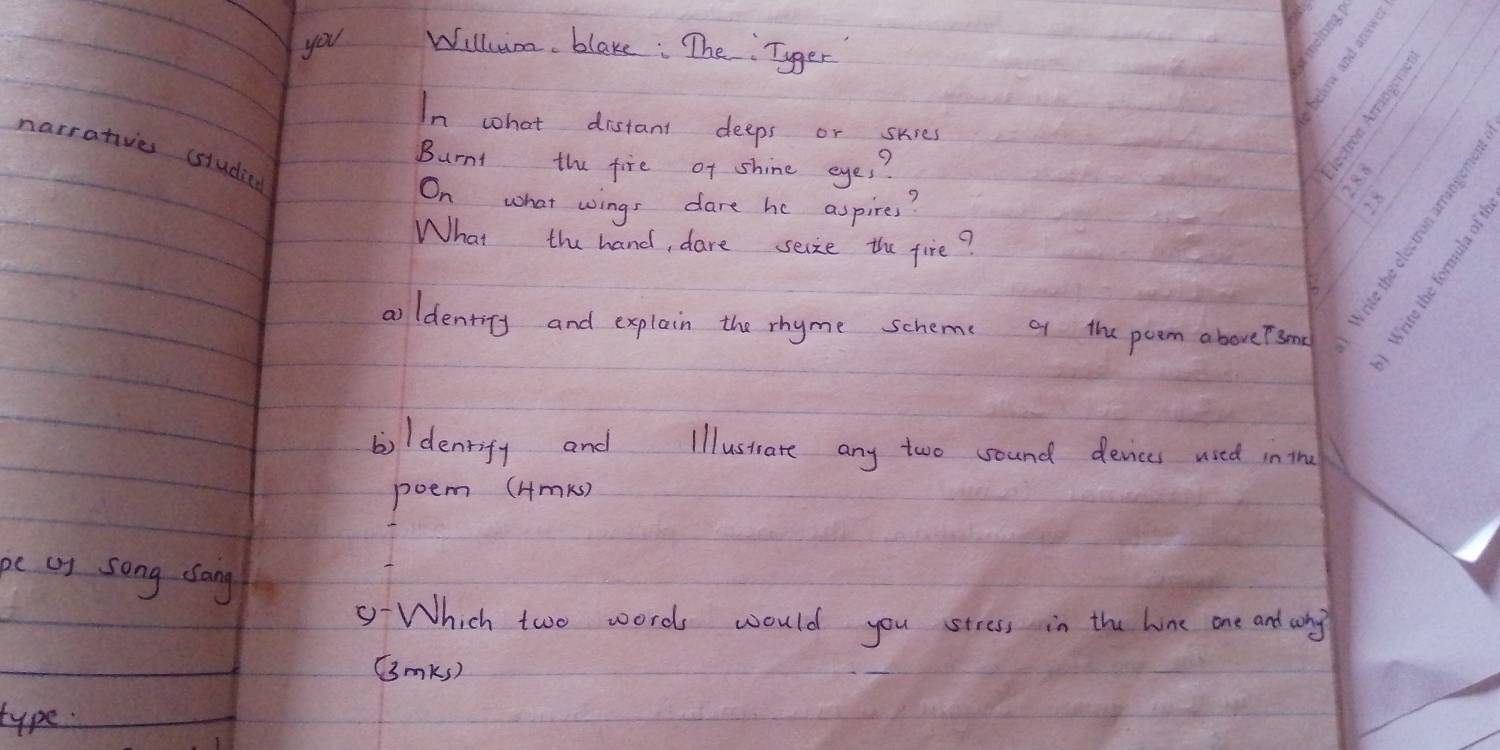 you
William. blake : The 'Tyger'
narratives (studied
In what distant deeps or skies
Burnt the fire of shine eyes?
On what wings dare he aspires?
What the hand, dare seize the fire?
a) Identify and explain the rhyme scheme of the poem above
b) Identify and Illustrate any two sound devices used in the
poem (4mks)
-
-
pe of song sang
c) - Which two words would you stress in the line one and why?
(3mks)
type.
melting p
below and answer
Electron Arrangement
2.8.8
2.8
a) Write the electron arrangement of
b) Write the formula of the